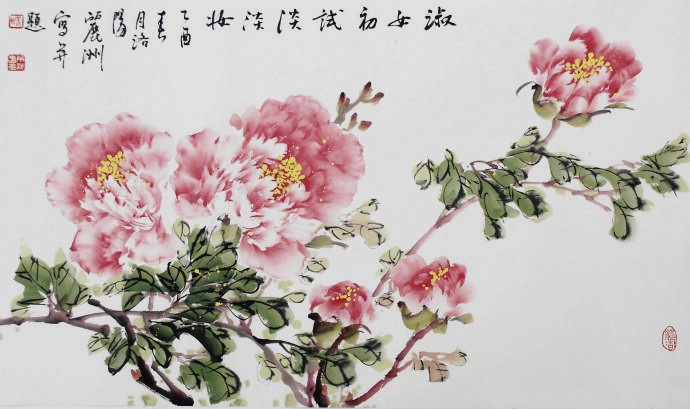 淑女初試淡淡妝
乙酉
春
月洛
陽
麗洲
寫并
題